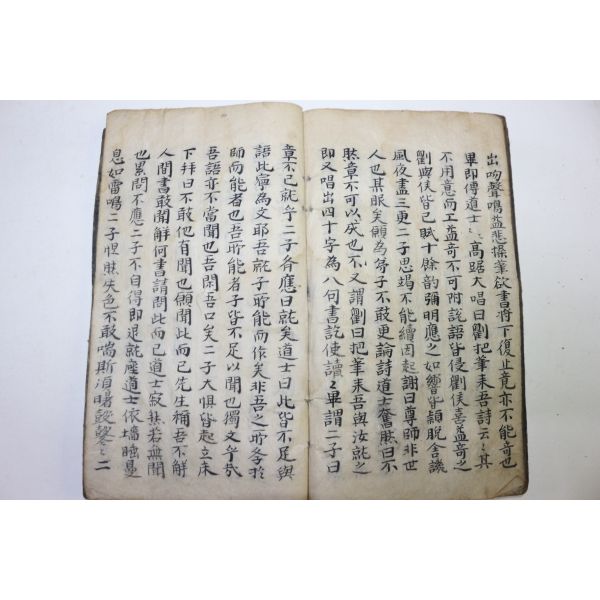 出吻聲鳴益悲操筆欲書將下復止竟亦不能奇也
畢即傳道士〻高踞大唱曰劉把筆来吾詩云〻其
不用意而工益奇不可附說語皆侵劉侯喜益奇之
劉與侯皆已賦十餘韻彌明應之如響皆穎脫含譏
風夜盡三更二子思竭不能續因起謝曰尊師非世
人也某服矣願為弟子不敢更論詩道士奮然曰不
然章不可以成也不又謂劉曰把筆来吾與汝就之
即又唱出四十字為八句書訖使讀〻畢謂二子曰
章不已就乎二子齊應曰就矣道士曰此皆不足與
語此寧為文耶吾就子所能而作矣非吾之所學於
師而能者也吾所能者子皆不足以聞也獨文乎哉
吾語亦不當聞也吾閉吾口矣二子大惧皆起立床
下拜曰不敢他有聞也願聞此而已先生稱吾不解
人間書敢聞解何書請問此而已道士寂然若無聞
也累問不應二子不自得即退就座道士依墻睡鼻
息如雷鳴二子怛然失色不敢喘斯須曙鼓鼕〻二